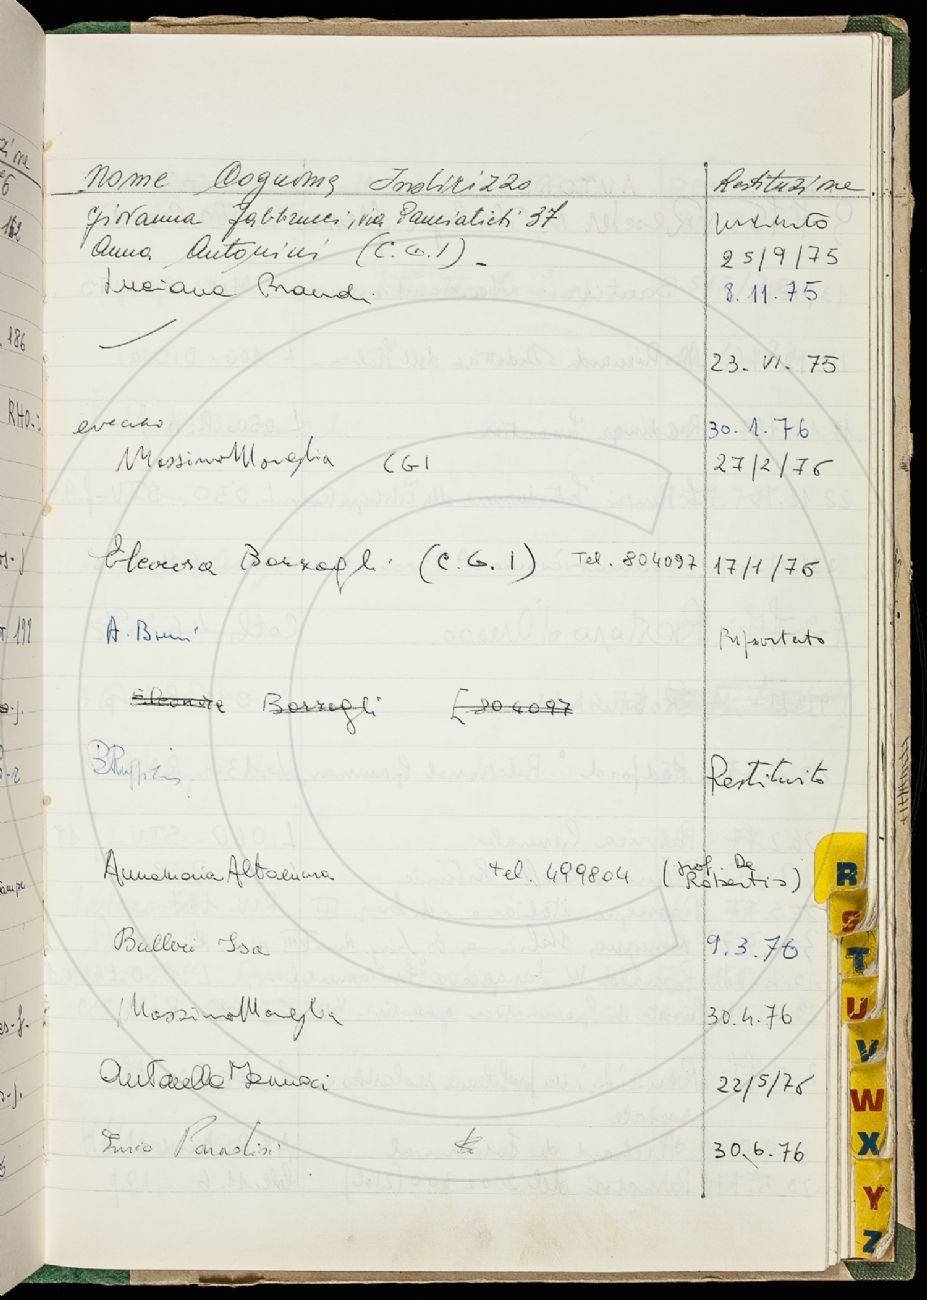 Nome Cognome Indirizzo Restituzione
Giovanna Fabbrucci, via Panciatichi 37
Anna Antonini (C.G.I) - 25/9/75
Luciana Brandi 8.11.75
23. VI. 75
30.1.76
Massimo Moneglia CGI 27/2/76
Eleonora Barzagli (C.G.I) Tel. 804097 17/1/76
A. Bruni Riportato
Eleonora Barzagli [804097
Restituito
Annamaria tel. 499804 (prof. De Robertis)
Balleri Isa 9.3.76
Massimo Moneglia 30.4.76
Antonella 22/5/76
30.6.76
162
186
RHO-
R
S
T
U
V
W
X
Y
Z